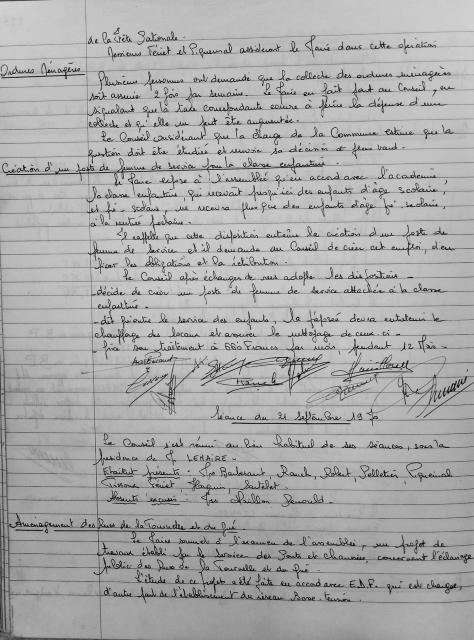 de la Fête Nationale.
Messieurs Février et Piquernal assisteront le Maire dans cette opération
Ordures Ménagères
Plusieurs personnes ont demandé que la collecte des ordures ménagères
soit assurée 2 fois par semaine. Le Maire en fait part au Conseil, en
signalant que la taxe correspondante couvre à peine la dépense d'une
collecte et qu'elle ne peut être augmentée.
Le Conseil considérant que la charge de la Commune estime que la
question doit être étudiée et renvoie sa décision à plus tard.
Création d'un poste de femme de service pour la classe enfantine.
Le Maire expose à l'assemblée qu'en accord avec l'académie
la classe enfantine, qui recevait jusqu'ici des enfants d'âge scolaire,
et pré-scolaire, ne recevra plus que des enfants d'âge pré-scolaire,
à la rentrée prochaine.
Il rappelle que cette disposition entraîne la création d'un poste de
femme de service et il demande au Conseil de créer cet emploi, d'en
fixer les obligations et la rétribution.
Le Conseil après échanges de vues adopte les dispositions -
- décide de créer un poste de femme de service attachée à la classe
enfantine.
- dit qu'outre le service des enfants, la préposée devra entretenir le
chauffage des locaux et assurer le nettoyage de ceux-ci -
- fixe son traitement à 660 Francs par mois, pendant 12 Mois -
Séance du 21 Septembre 19
Le Conseil s'est réuni au lieu habituel de ses séances, sous la
présidence de M. LEMAIRE -
Etaient présents - Robert, Pelletier, Piquernal
Absents excusés -
Aménagement des Rues de la Tournelle et du Gué.
Le Maire soumet à l'examen de l'assemblée, un projet de
travaux établi par le service des Ponts et Chaussées, concernant l'éclairage
public des Rues de la Tournelle et du Gué.
L'étude de ce projet a été faite en accord avec E.D.F. qui est chargée,
d'autre part de l'établissement du réseau Basse-tension.